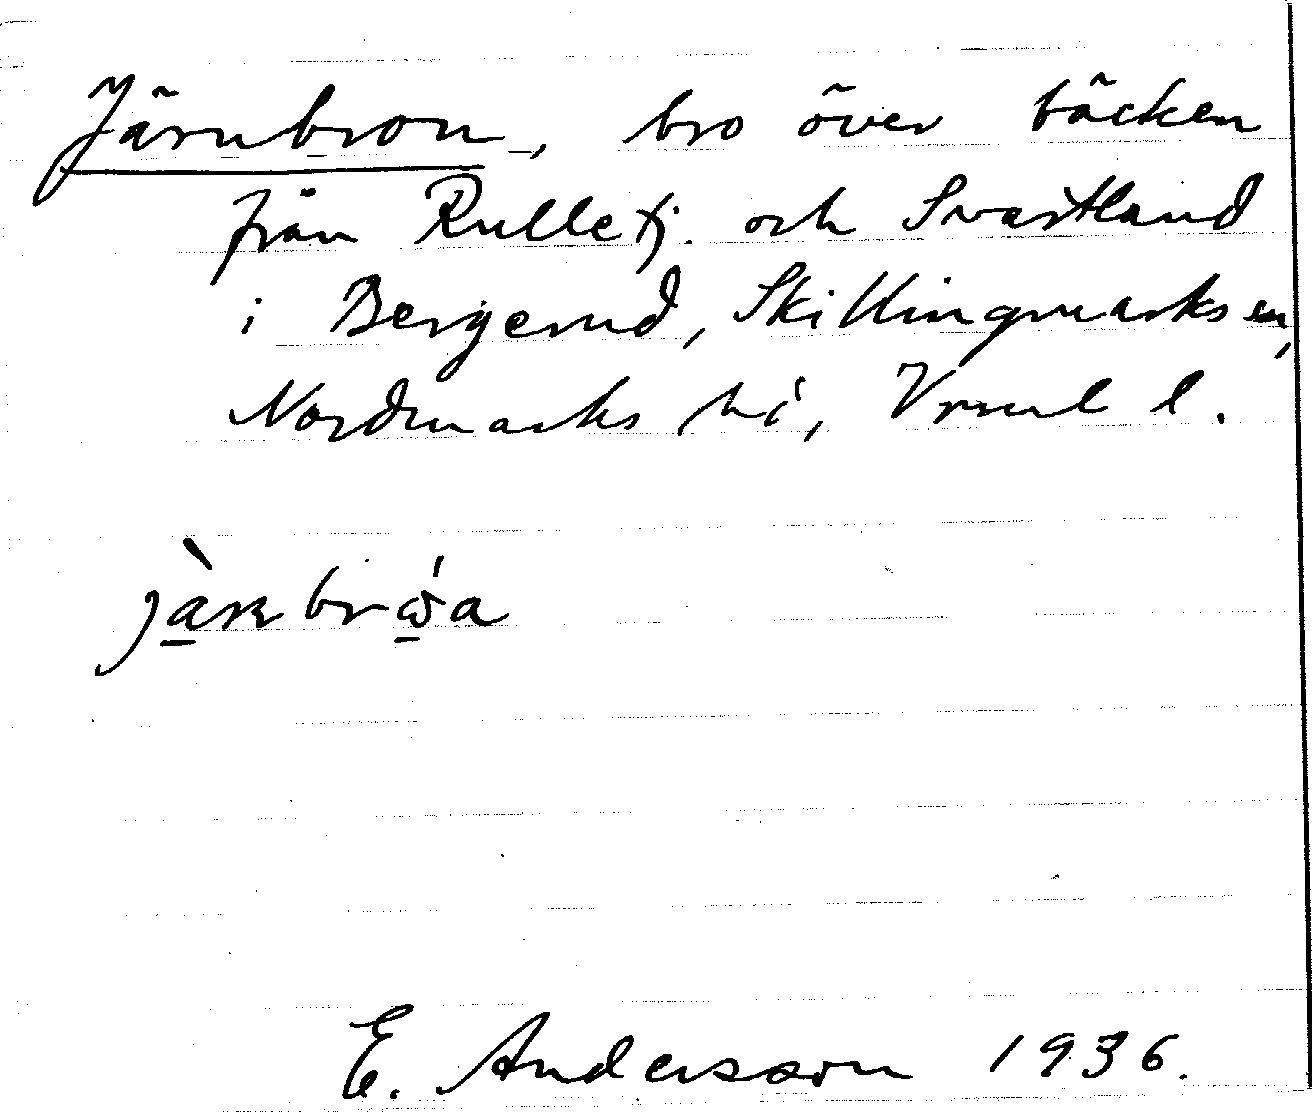 Järnbron, bro över bäcken
från Rulletj. och Svartland
i Bergerud, Skillingmarks sn,
Nordmarks hd, Vrml l.
jä̀rnbrωa
E. Andersson 1936.